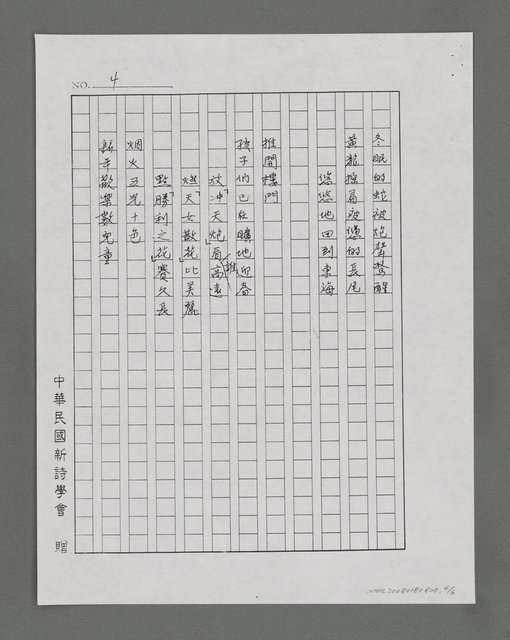 NO. 4
冬眠的蛇被炮聲驚醒
黃龍搖肩被憊的長尾
悠悠地回到東海
推開樓門
孩子們已在曠地迎春
放「冲天炮」肩高遠
誰
燃「天女散花」比美麗
點「勝利之花」賽久長
烟火五光十色
新年歡樂數兒童
中華民國新詩學會 贈
NMTL20080180820, 4/6